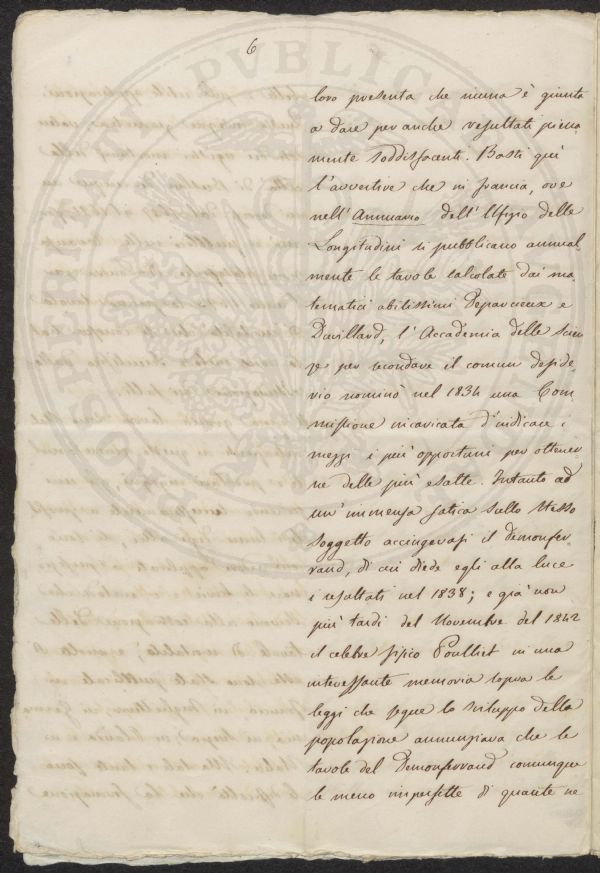 6
loro presenta che niuna è giunta
a dare per anche resultati piena
mente soddisfacenti. Basti quì
l'avvertire che in francia, ove
nell'Annuario dell'Ufizio delle
Longitudini si pubblicano annual-
mente le tavole calcolate dai ma-
tematici abilissimi Deparcieux e
Duvillard, l'Accademia delle Scien
ze per secondare il comun deside-
rio nominò nel 1834 una Com
missione incaricata d'indicare i
mezzi i più opportuni per ottener-
ne delle più esatte. Intanto ad
un'immensa fatica sullo stesso
soggetto accingevasi il Demonfer-
rand, di cui diede egli alla luce
i resultati nel 1838; e già non
più tardi del Novembre del 1842
il celebre fisico Poulliet in una
interessante memoria sopra le
leggi che segue lo sviluppo della
popolazione annunziava che le
tavole del Demonferrand comunque
le meno imperfette di quante ne